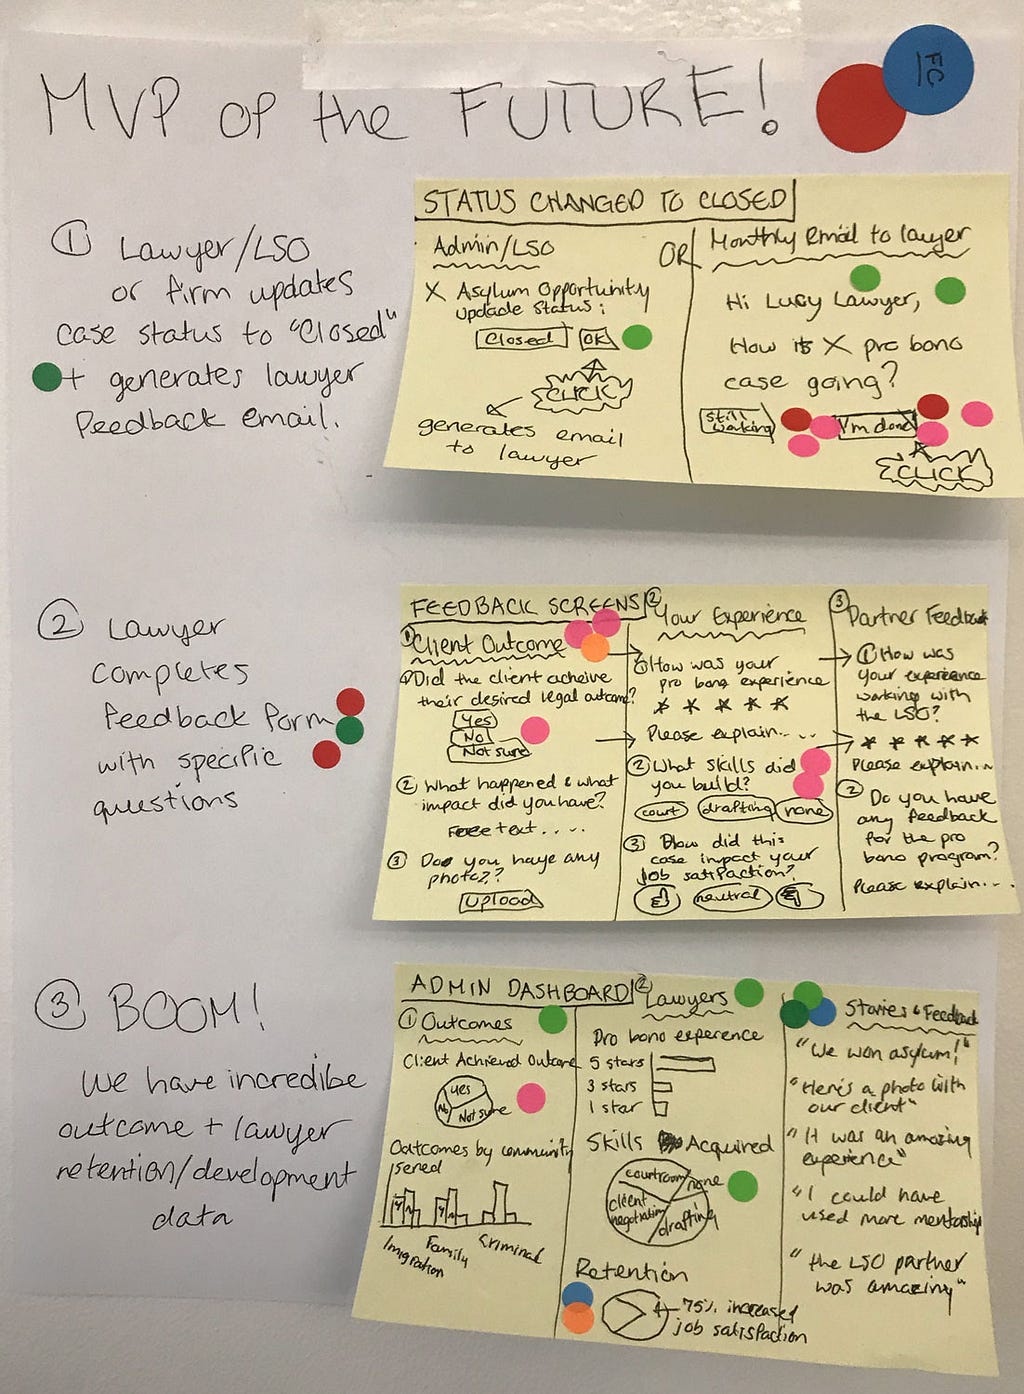 MVP of the FUTURE!
FC
① Lawyer/LSO
or firm updates
case status to "Closed"
+ generates lawyer
feedback email.
STATUS CHANGED TO CLOSED
Admin/LSO
X Asylum Opportunity
update status:
Closed OK
CLICK
generates email
to lawyer
OR
Monthly Email to lawyer
Hi Lucy Lawyer,
How is X pro bono
case going?
still working
I'm done
CLICK
② Lawyer
completes
feedback form
with specific
questions
FEEDBACK SCREENS
① Client Outcome
① Did the client acheive
their desired legal outcome?
Yes
No
Not sure
② What happened & what
impact did you have?
Free text....
③ Do you have any
photoz??
Upload
② Your Experience
① How was your
pro bono experience
* * * * *
Please explain....
② What skills did
you build?
court drafting none
③ How did this
case impact your
job satfaction?
neutral
③ Partner Feedback
① How was
your experience
working with
the LSO?
* * * * *
Please explain...
② Do you have
any feedback
for the pro
bono program?
Please explain...
③ BOOM!
We have incredibe
outcome + lawyer
retention/development
data
ADMIN DASHBOARD
① Outcomes
Client Achieved Outcome
yes
No
Not sure
Outcomes by community
served
Imigration
Family
Criminal
② Lawyers
Pro bono experence
5 stars
3 stars
1 star
Skills Acquired
courtroom
none
client
negotiation
drafting
Retention
75% increased
job satisfaction
Stories & Feedback
"We won asylum!"
"Here's a photo with
our client"
"It was an amazing
experence"
"I could have
used more mentorship
"the LSO partner
was amazing"